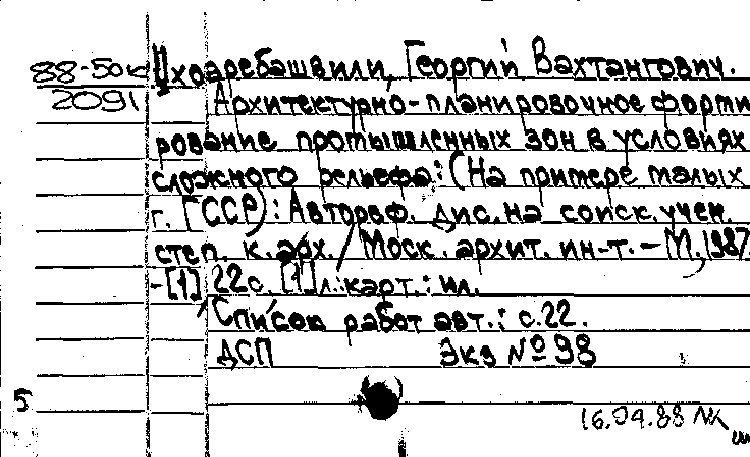 88-50к
2091
Цхоаребашвили, Георгий Вахтангович.
Архитектурно-планировочное форми
рование промышленных зон в условиях
сложного рельефа: (На примере малых
г. ГССР): Автореф. дис. на соиск. учен.
степ. к. арх. / Моск. архит. ин-т. - М., 1987.
-[1] 22с. [1]л.: карт.: ил.
Список работ авт.: с. 22.
ДСП Экз № 98
5
16.04.88